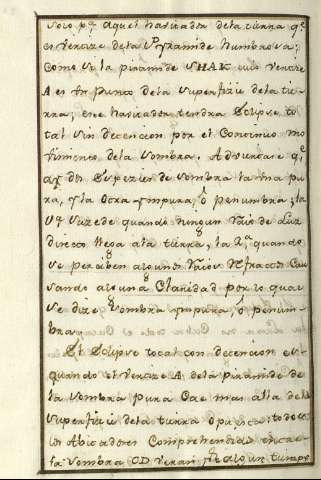 Solo p.ª aquel havitador de la tierra q.e
es vertize de la Piramide humbrosa;
Como si la piramide SHAK cuio vertize
A es un punto de la superfizie de la tie-
rra; ese havitador tendra Eclipse to-
tal sin detencion por el Continuo mo-
vimiento de la sombra. Adviertase q.e
ay dos Espezies de sombra la una pu-
ra, y la otra ympura, ô penumbra; la
1.ª suzede quando ningun Raio de Luz
directo llega a la tierra, la 2.ª quando
se perciben algunos Raios Refractos Cau-
sando alguna Claridad por lo qual
se dize Sombra ympura, ô penum-
bra.
El Eclipse total con detencion es
quando el vertize A de la piramide de
la sombra pura Cae mas alla de la
superfizie de la tierra
los Abitadores Comprehendidos en
la sombra CD veran algun tiempo